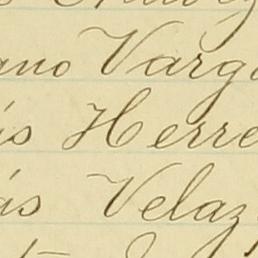 ano Varg
ás Herre
ás Velaz